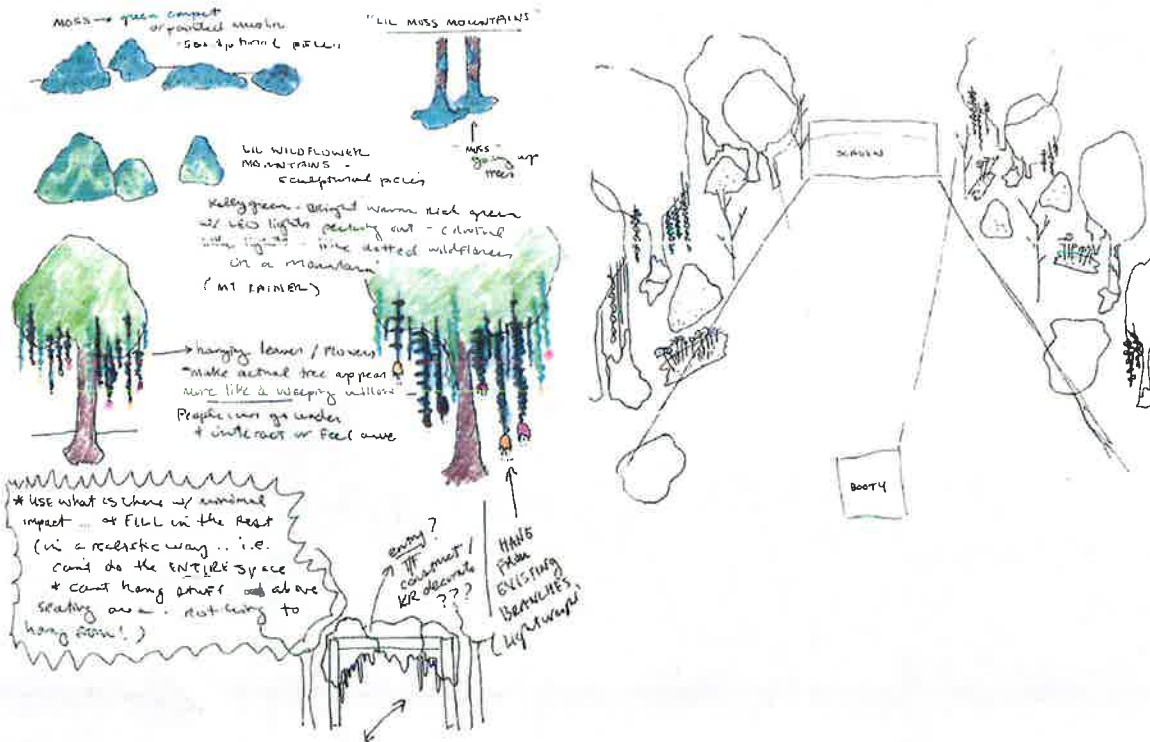 MOSS → green carpet
or painted muslin
- sculptural pieces
"LIL MOSS MOUNTAINS"
MOSS
going up
trees
LIL WILDFLOWER
MOUNTAINS -
sculptural pieces
Kelly green - Bright warm rich green
w/ LED lights peeking out - colorful
lights - like dotted wildflowers
on a mountain
(MT RAINER)
→ hanging leaves / flowers
* make actual tree appear
more like a weeping willow
People can go under
+ interact or feel awe
* USE what is there w/ minimal
impact ... + FILL in the rest
(in a realistic way .. i.e.
can't do the ENTIRE space
+ can't hang stuff above
seating area - nothing to
hang from!)
entry?
construct /
OR decorate
???
HANG
FROM
EXISTING
BRANCHES
(lightweight)
SCREEN
BOOTY